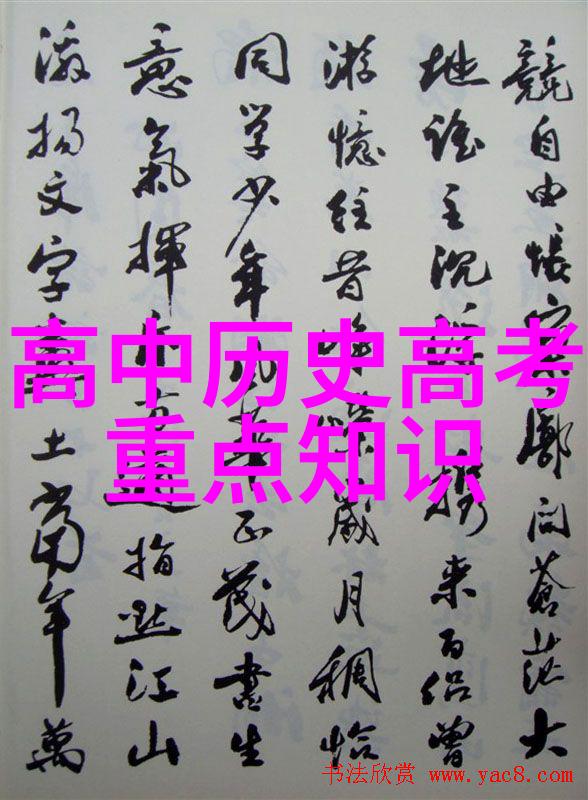 競自由悵寥廓问蒼茫大
地谁主沉浮携来百侣曾
游憶往昔崢嶸歲月稠恰
同学少年风华正茂書生
意氣揮斥方遒指點江山
激揚文字糞土當年萬
高中历史高考
重点知识
书法欣赏 www.yac8.com